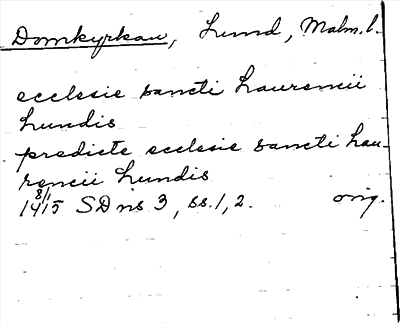 Domkyrkan, Lund, Malm. l.
ecclesie sancti Laurencii
Lundis
predicte ecclesie sancti Lau-
rencii Lundis
8/1
1415 SD ns 3, ss. 1, 2. orig.